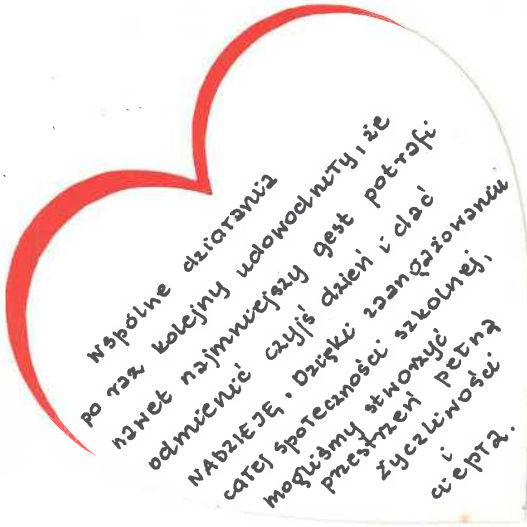 Wspólne działania
po raz kolejny udowodniły, że
nawet najmniejszy gest potrafi
odmienić czyjś dzień i dać
NADZIEJĘ. Dzięki zaangażowaniu
całej społeczności szkolnej,
mogliśmy stworzyć
przestrzeń pełną
życzliwości
i
ciepła.